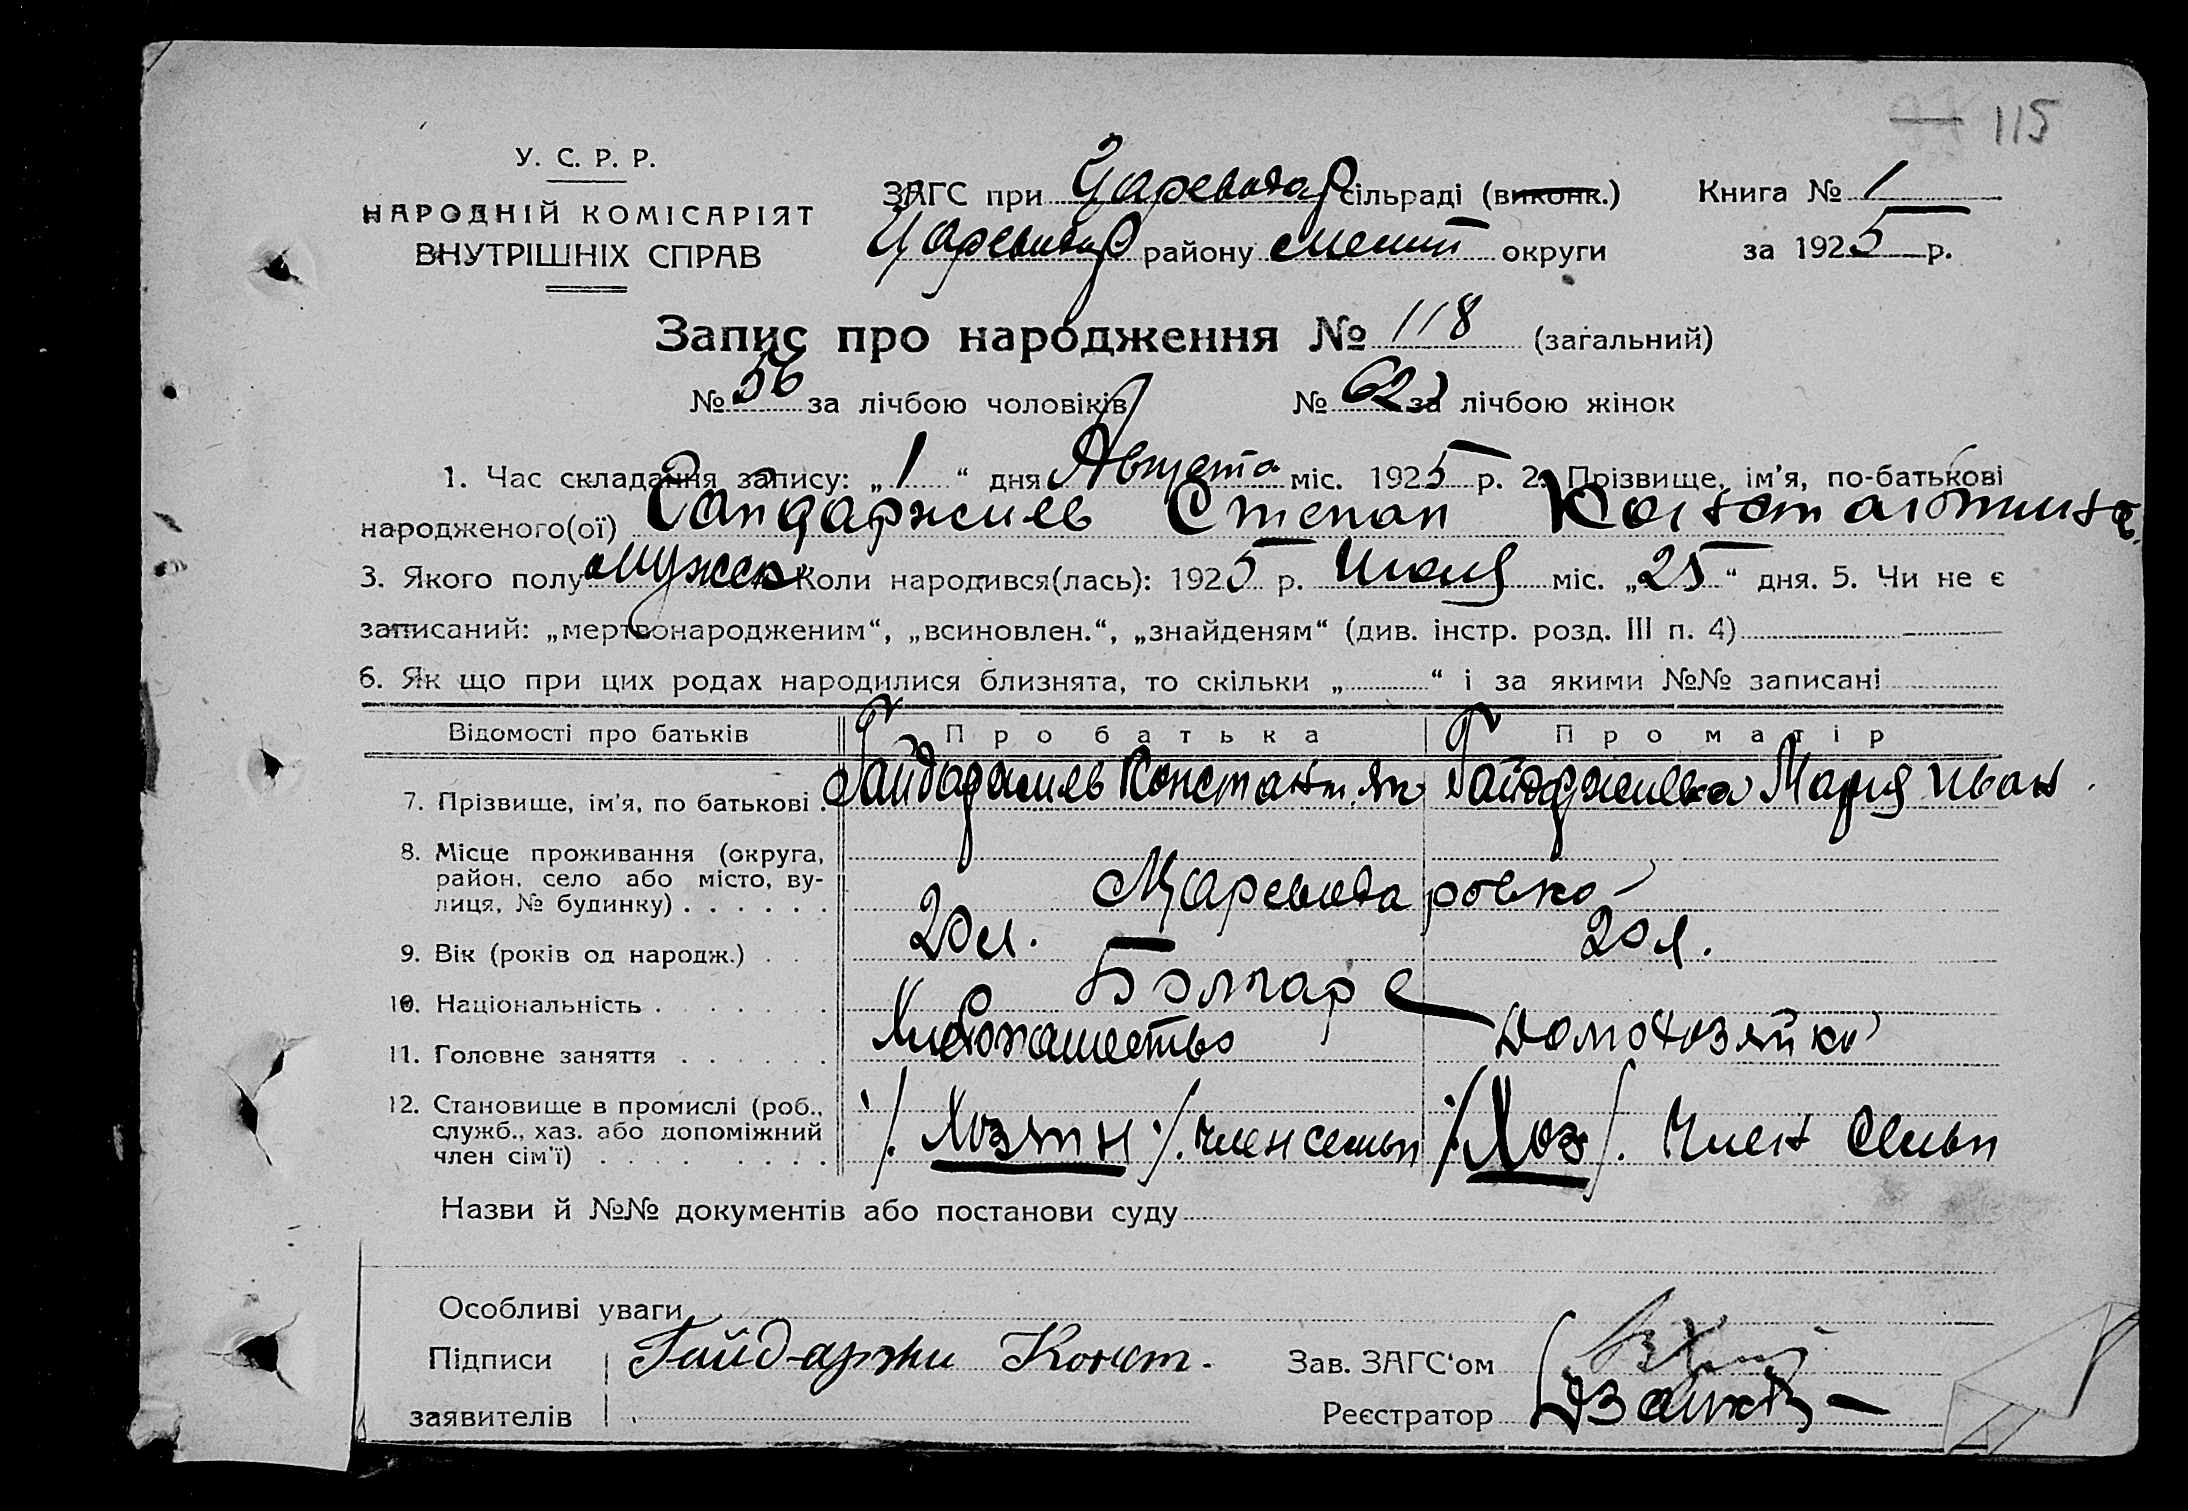 115
У. С. Р. Р.
НАРОДНІЙ КОМІСАРІЯТ
ВНУТРІШНІХ СПРАВ
ЗАГС при Царевода́р сільраді (виконк.) Книга № 1
району округи за 1925 р.
Запис про народження № 118 (загальний)
№ 56 за лічбою чоловіків № 62 за лічбою жінок
1. Час складання запису: „1“ дня Августа міс. 1925 р. 2. Прізвище, ім'я, по-батькові
народженого(ої) Гайдаржиев Степан Константинов
3. Якого полу мужск Коли народився(лась): 1925 р. Июля міс. „25“ дня. 5. Чи не є
записаний: „мертвонародженим“, „всиновлен.“, „знайденям“ (див. інстр. розд. III п. 4)
6. Як що при цих родах народилися близнята, то скільки „ “ і за якими №№ записані
Відомості про батьків Про батька Про матір
7. Прізвище, ім'я, по батькові Гайдаржиев Константин Гайдаржиева Мария Иван
8. Місце проживання (округа,
район, село або місто, ву-
лиця, № будинку) Цареводаровка
9. Вік (років од народж.) 20 л. 20 л.
10. Національність Болгаре
11. Головне заняття Хлебопашество Домохозяйка
12. Становище в промислі (роб.,
служб., хаз. або допоміжний
член сім'ї) /. Хозяин /. член семьи /. Хоз /. Член семьи
Назви й №№ документів або постанови суду
Особливі уваги
Підписи Гайдаржи Конст. Зав. ЗАГС'ом
заявителів Реєстратор